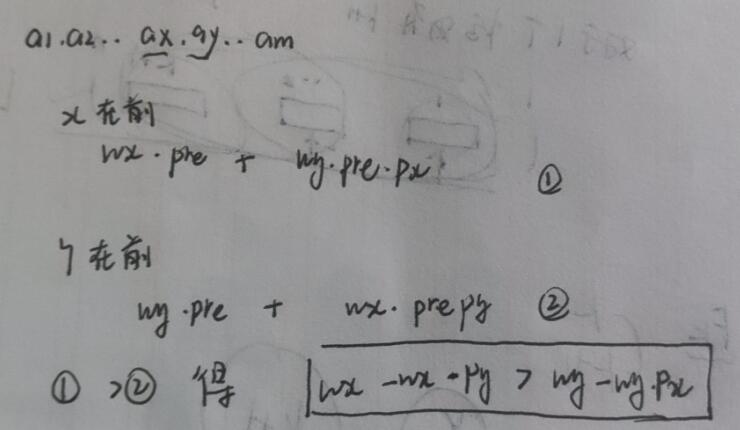 a1.a2.. ax.ay.. am
x在前
wx·pre + wy·pre·px ①
y在前
wy·pre + wx·prepy ②
①>② 得 wx-wx·py > wy-wy·px